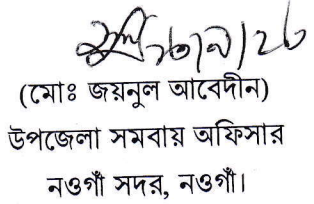 (মোঃ জয়নুল আবেদীন)
উপজেলা সমবায় অফিসার
নওগাঁ সদর, নওগাঁ।